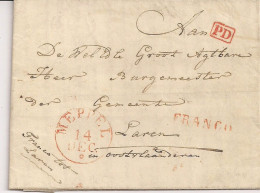 Aan
PD
De WelEdle Groot Agtbare
Heer Burgemeester
der Gemeente
FRANCO
MEPPEL
14
DEC
Laren
in oostvlaanderen
Franco tot
Laren